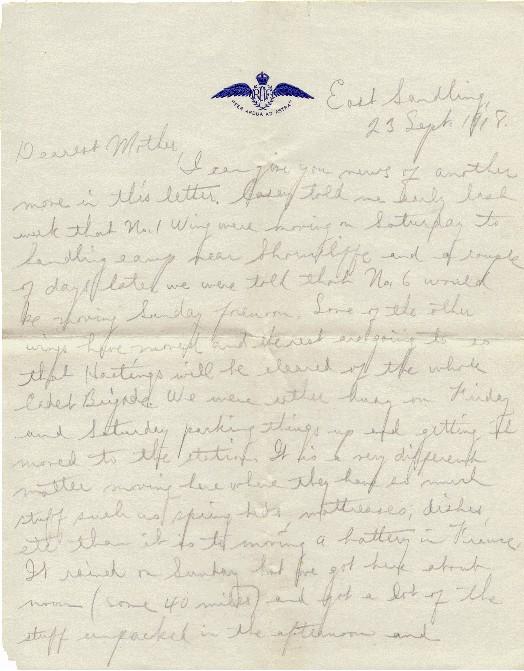 RFC
PER ARDUA AD ASTRA
East Sandling,
23 Sept. 1918.
Dearest Mother,
I can give you news of another
move in this letter. Casey told me early last
week that No. 1 Wing were moving on Saturday to
Sandling camp near Shorncliffe and a couple
of days later we were told that No. 6 would
be moving Sunday forenoon. Some of the other
wings have moved and the rest are going to so
that Hastings will be cleared of the whole
Cadet Brigade. We were rather busy on Friday
and Saturday packing things up and getting it
moved to the station. It is a very different
matter moving here where they have so much
stuff such as spring beds mattresses, dishes
etc than it is to moving a battery in France.
It rained on Sunday but we got here about
noon (some 40 miles) and got a lot of the
stuff unpacked in the afternoon and